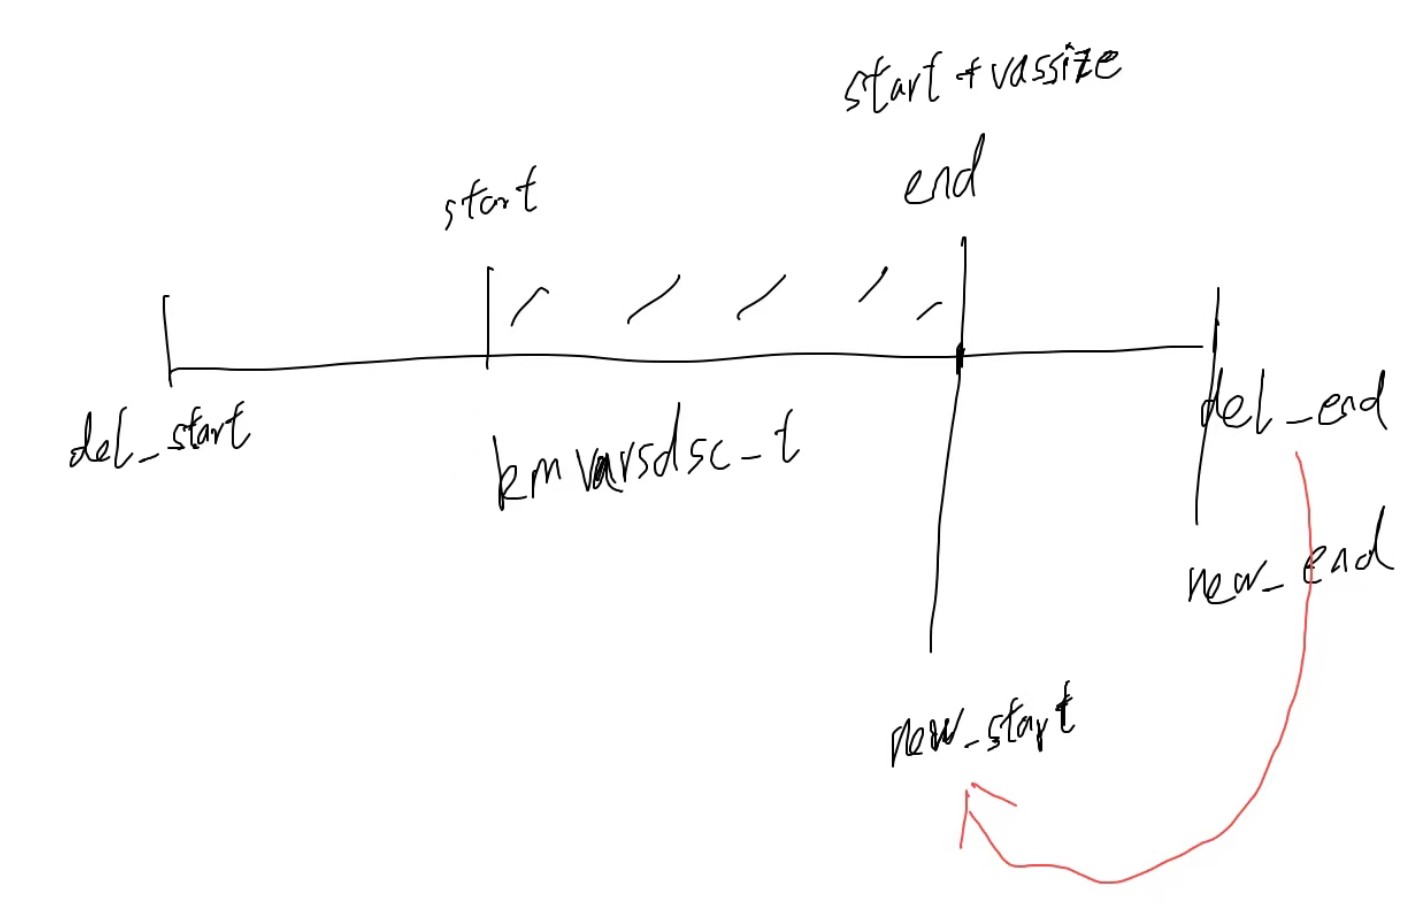 start + vassize
end
start
del_start
kmvarsdsc_t
del_end
new_end
new_start